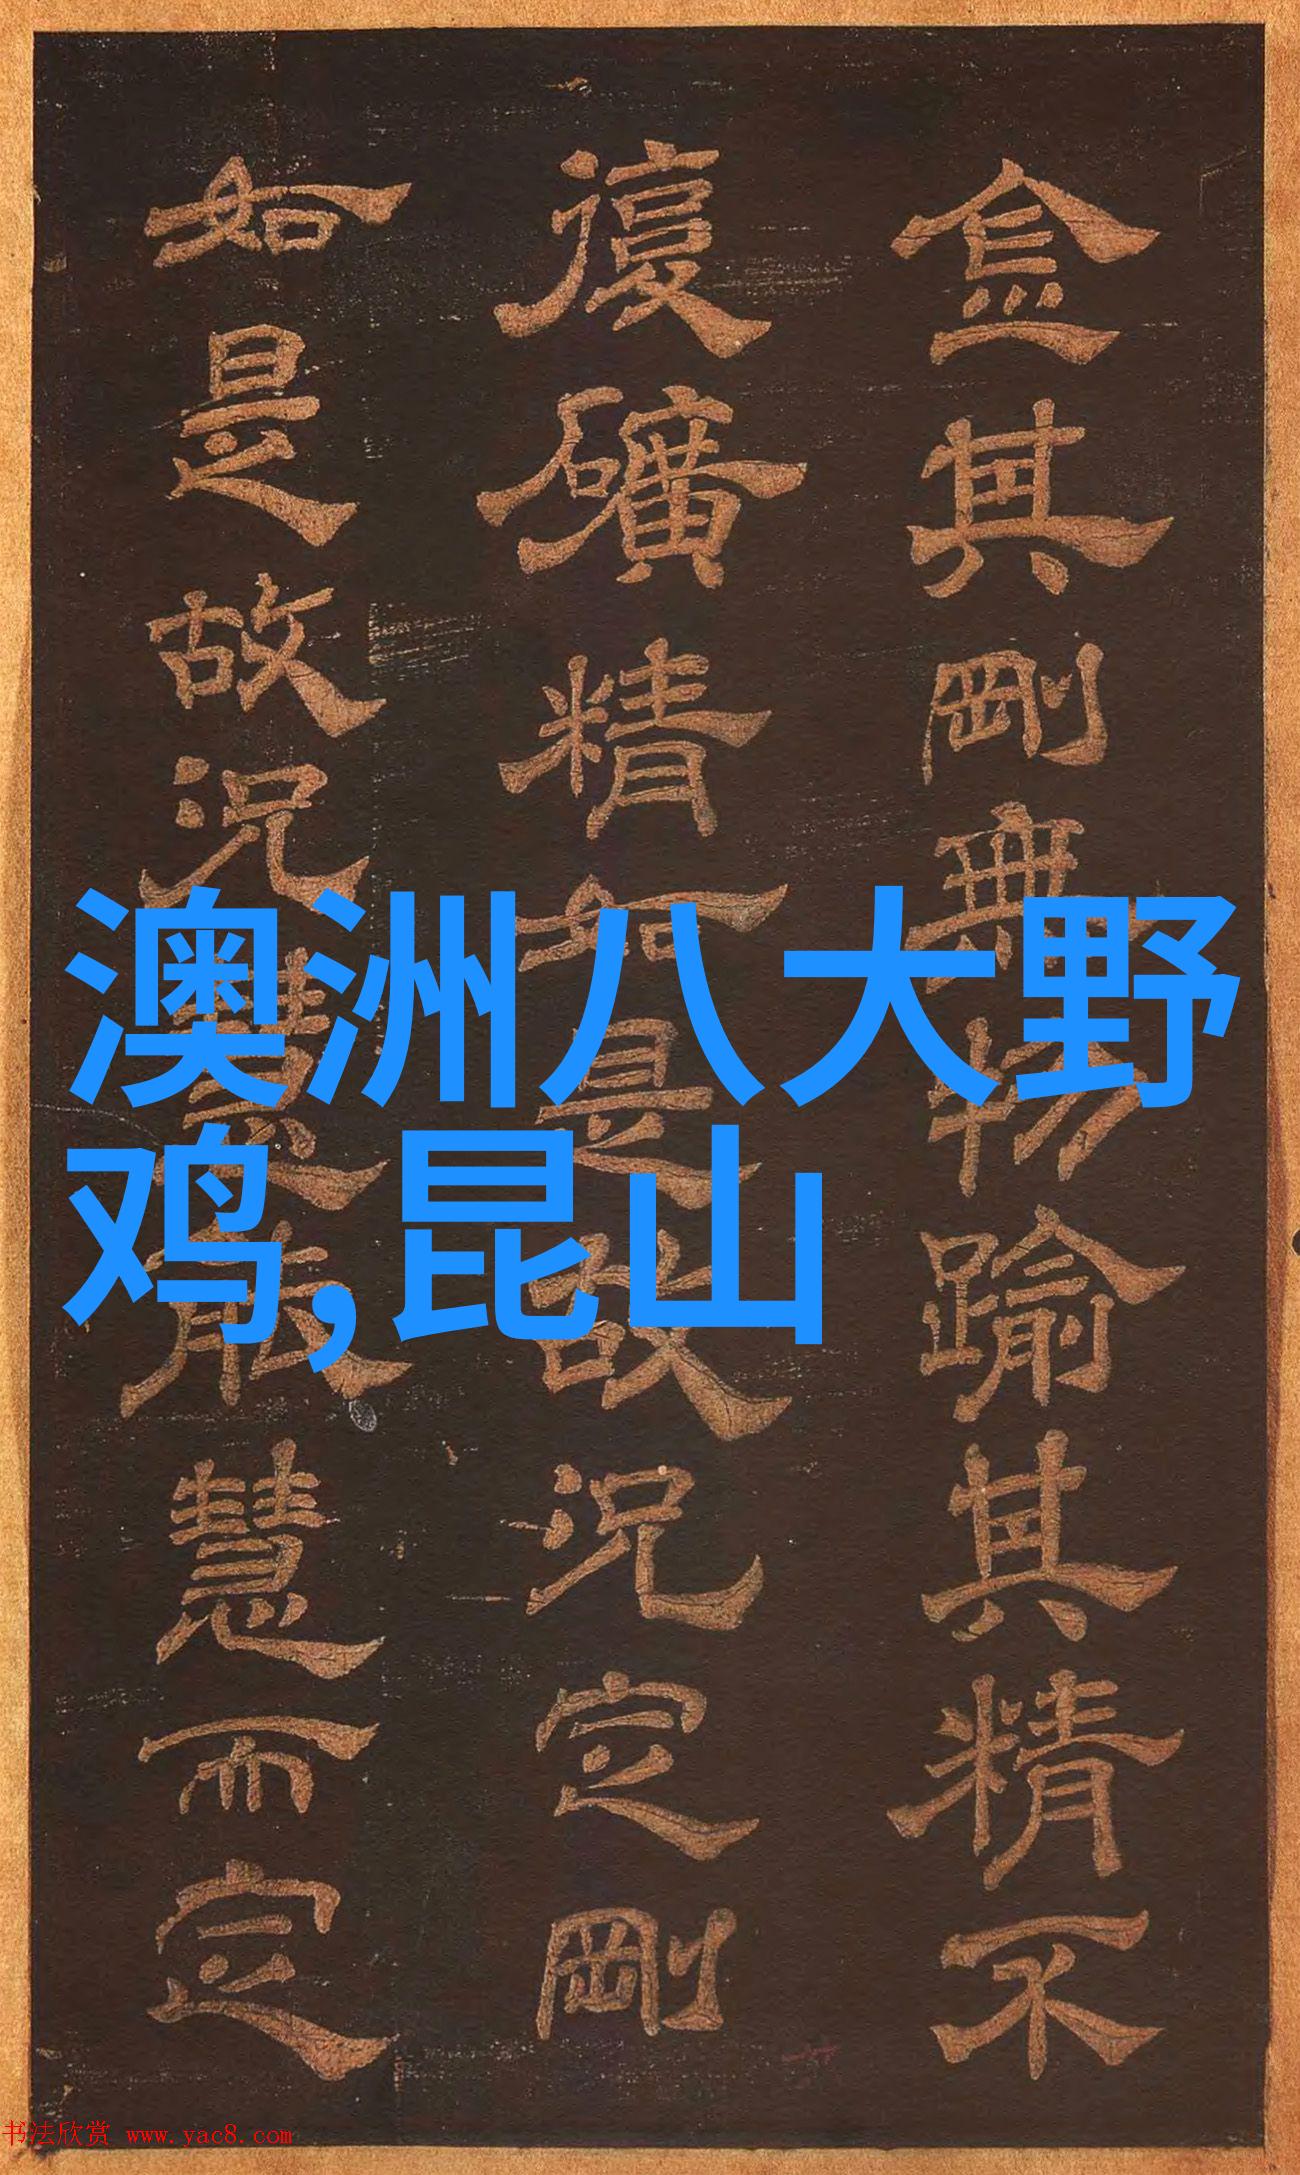 金其剛無物踰其精不
復礦精如是故況定剛
如是故況慧能慧而定
澳洲八大野
鸡,昆山
书法欣赏 www.yac8.com